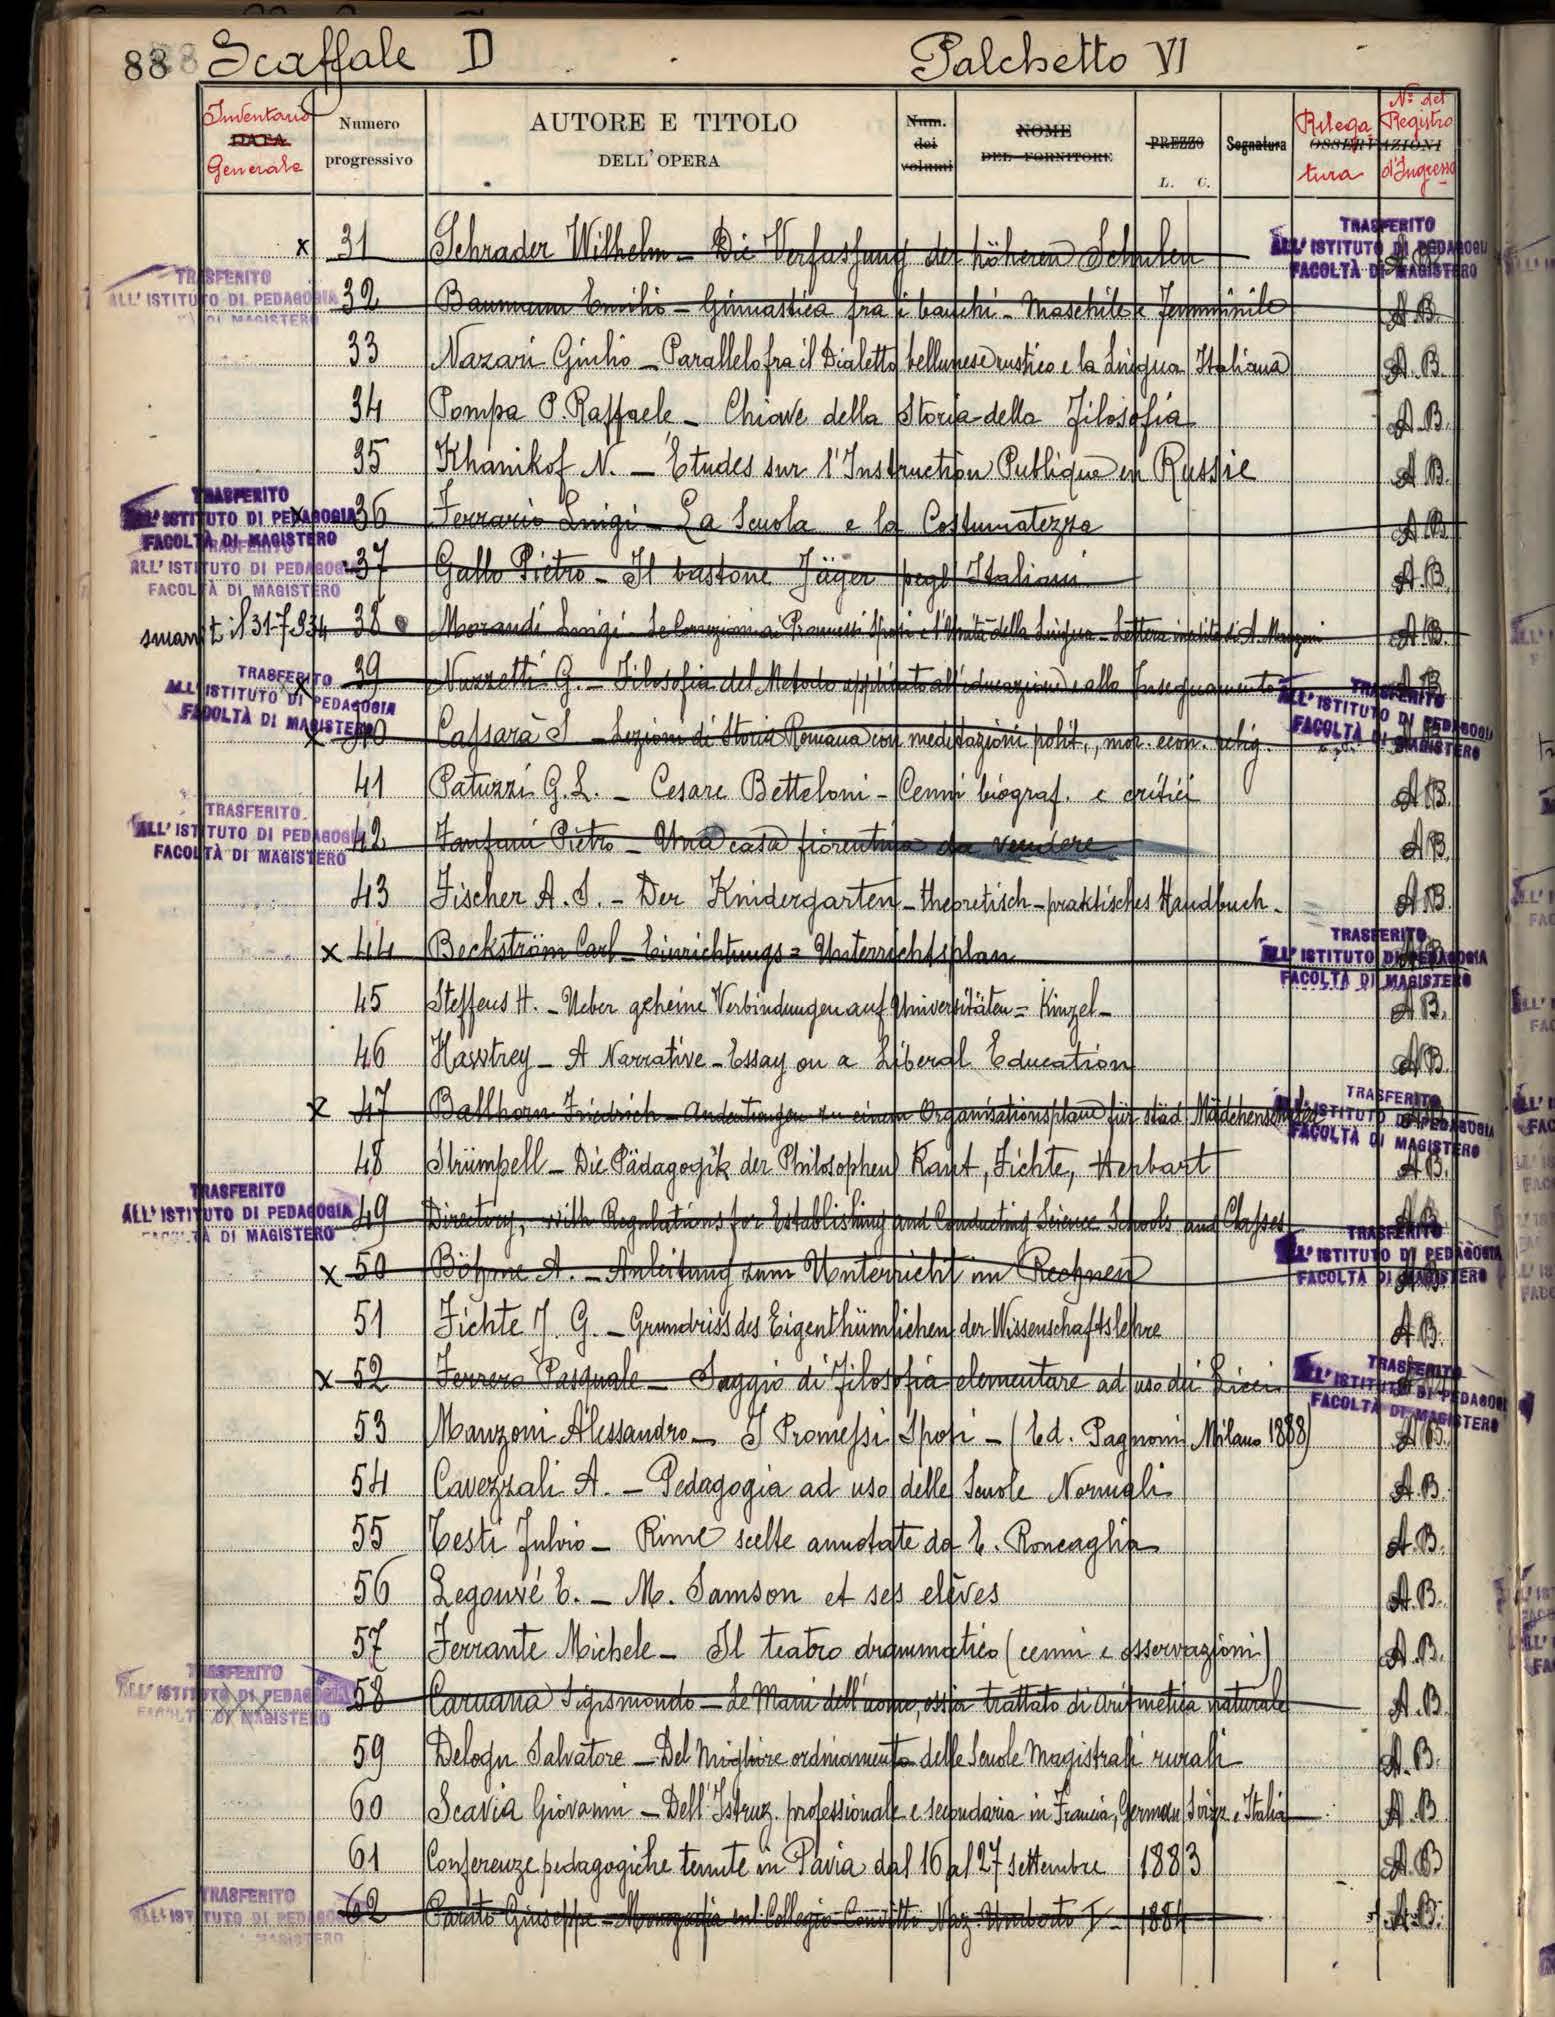 88 Scaffale D Palchetto VI
Inventario DATA Generale Numero progressivo AUTORE E TITOLO DELL'OPERA Num. dei volumi NOME DEL FORNITORE PREZZO L. C. Segnatura Rilegatura OSSERVAZIONI N° del Registro d'Ingresso
x 31 Schrader Wilhelm – Die Verfassung der höheren Schulen TRASFERITO ALL'ISTITUTO DI PEDAGOGIA FACOLTÀ DI MAGISTERO
TRASFERITO ALL'ISTITUTO DI PEDAGOGIA DI MAGISTERO 32 Baumann Emilio – Ginnastica fra i banchi – Maschile e Femminile A.B.
33 Nazari Giulio – Parallelo fra il Dialetto bellunese rustico e la Lingua Italiana A.B.
34 Pompa P. Raffaele – Chiave della Storia della Filosofia A.B.
35 Khanikof N. – Etudes sur l'Instruction Publique en Russie A.B.
TRASFERITO ALL'ISTITUTO DI PEDAGOGIA FACOLTÀ DI MAGISTERO x 36 Ferrario Luigi – La Scuola e la Costumatezza A.B.
TRASFERITO ALL'ISTITUTO DI PEDAGOGIA FACOLTÀ DI MAGISTERO 37 Gallo Pietro – Il bastone Jäger pegl' Italiani A.B.
smarrit il 31-7-934 38 Morandi Luigi – Le Correzioni ai Promessi Sposi e l'Unità della Lingua – Lettera inedita di A. Manzoni A.B.
TRASFERITO ALL'ISTITUTO DI PEDAGOGIA FACOLTÀ DI MAGISTERO x 39 Nuzzetti G. – Filosofia del Metodo applicato all'educazione e allo Insegnamento A.B.
x 40 Cassarà S – Lezioni di Storia Romana con meditazioni polit., mor. econ. relig. TRASFERITO ALL'ISTITUTO DI PEDAGOGIA FACOLTÀ DI MAGISTERO
41 Patuzzi G.L. – Cesare Betteloni – Cenni biograf. e critici A.B.
TRASFERITO ALL'ISTITUTO DI PEDAGOGIA FACOLTÀ DI MAGISTERO 42 Fanfani Pietro – Una casa fiorentina da vendere A.B.
43 Fischer A. S. – Der Knidergarten – theoretisch – praktisches Handbuch – A.B.
x 44 Beckström Carl – Einrichtungs = Unterrichtsplan TRASFERITO ALL'ISTITUTO DI PEDAGOGIA FACOLTÀ DI MAGISTERO
45 Steffens H. – Ueber geheine Verbindungen auf Universitäten = Kinzel – A.B.
46 Hawtrey – A Narrative – Essay on a Liberal Education A.B.
x 47 Ballhorn Friedrich – Andeutungen zu einem Organisationsplane für städ. Mädchenschulen TRASFERITO ALL'ISTITUTO DI PEDAGOGIA FACOLTÀ DI MAGISTERO
48 Strümpell – Die Pädagogik der Philosophen Kant, Fichte, Herbart A.B.
TRASFERITO ALL'ISTITUTO DI PEDAGOGIA FACOLTÀ DI MAGISTERO 49 Directory, with Regulations for Establishing and Conducting Science Schools and Classes A.B.
x 50 Böhme A. – Anleitung zum Unterricht im Rechnen TRASFERITO ALL'ISTITUTO DI PEDAGOGIA FACOLTÀ DI MAGISTERO
51 Fichte J. G. – Grundriss des Eigenthümlichen der Wissenschaftslehre A.B.
x 52 Ferrero Pasquale – Saggio di Filosofia elementare ad uso dei Licei TRASFERITO ALL'ISTITUTO DI PEDAGOGIA FACOLTÀ DI MAGISTERO
53 Manzoni Alessandro – I Promessi Sposi – (Ed. Pagnoni Milano 1888) A.B.
54 Cavezzali A. – Pedagogia ad uso delle Scuole Normali A.B.
55 Testi Fulvio – Rime scelte annotate da E. Roncaglia A.B.
56 Legouvé E. – M. Samson et ses elèves A.B.
57 Ferrante Michele – Il teatro drammatico (cenni e osservazioni) A.B.
TRASFERITO ALL'ISTITUTO DI PEDAGOGIA FACOLTÀ DI MAGISTERO 58 Caruana Sigismondo – Le Mani dell'uomo, ossia trattato di aritmetica naturale A.B.
59 Delogu Salvatore – Del Migliore ordinamento delle Scuole Magistrali rurali A.B.
60 Scavia Giovanni – Dell'Istruz. professionale e secondaria in Francia, German, Svizz. e Italia A.B.
61 Conferenze pedagogiche tenute in Pavia dal 16 al 27 settembre 1883 A.B.
TRASFERITO ALL'ISTITUTO DI PEDAGOGIA MAGISTERO 62 Parato Giuseppe – Monografia sul Collegio Convitto Naz. Umberto I – 1884 A.B.